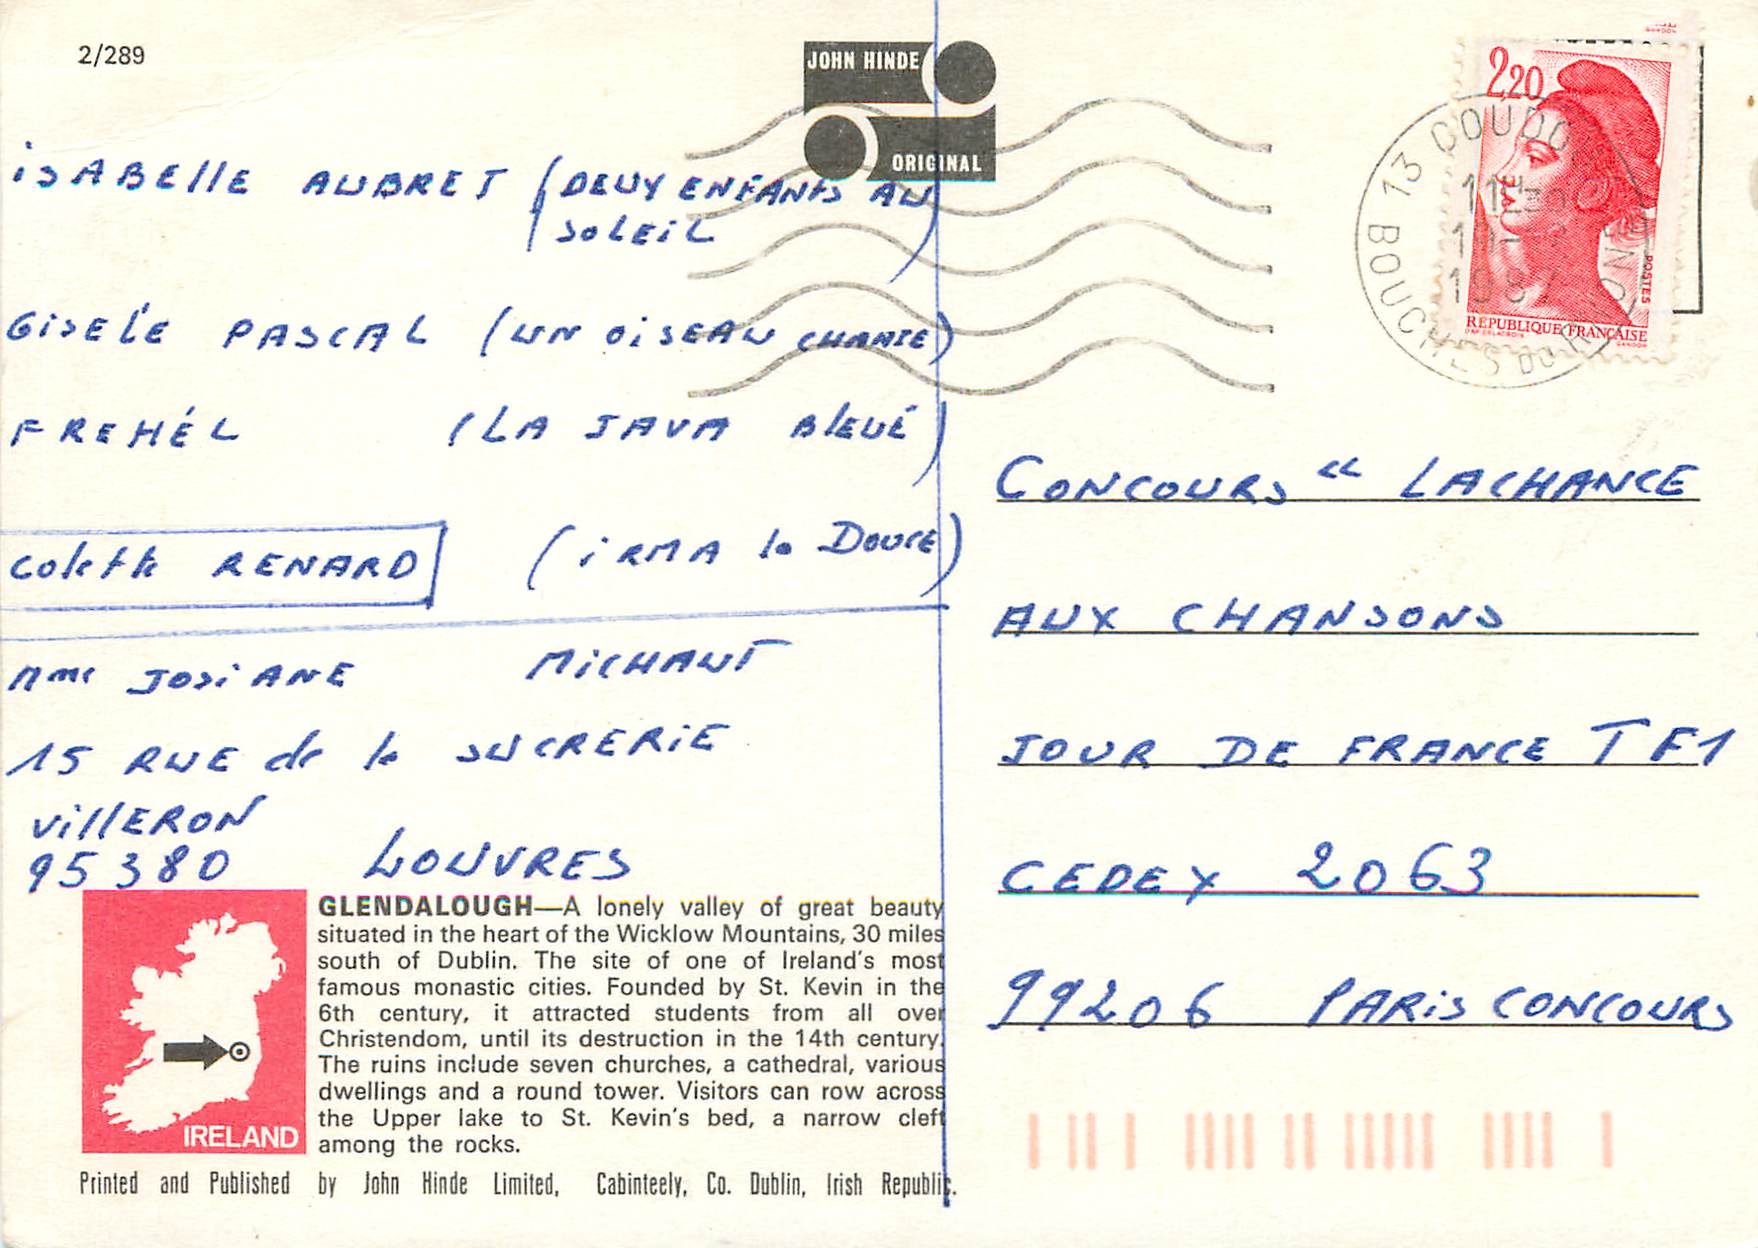 2/289
JOHN HINDE
ORIGINAL
ISABEllE AUBRET (DEUX ENFANTS AU
SOLEIL)
GISELE PASCAL (UN OISEAU CHANTE)
FREHÉL (LA JAVA BLEUE)
Colette RENARD (IRMA la DOUCE)
Mme JOSIANE MICHAUT
15 RUE de la SUCRERIE
VillERON
95380 LOUVRES
GLENDALOUGH—A lonely valley of great beauty
situated in the heart of the Wicklow Mountains, 30 miles
south of Dublin. The site of one of Ireland's most
famous monastic cities. Founded by St. Kevin in the
6th century, it attracted students from all over
Christendom, until its destruction in the 14th century.
The ruins include seven churches, a cathedral, various
dwellings and a round tower. Visitors can row across
the Upper lake to St. Kevin's bed, a narrow cleft
among the rocks.
IRELAND
Printed and Published by John Hinde Limited, Cabinteely, Co. Dublin, Irish Republic.
2,20
POSTES
RÉPUBLIQUE FRANÇAISE
GANDON
13 COUDOUX
1987
BOUCHES DU RHONE
CONCOURS « LACHANCE
AUX CHANSONS
JOUR DE FRANCE TF1
CEDEX 2063
99206 PARIS CONCOURS